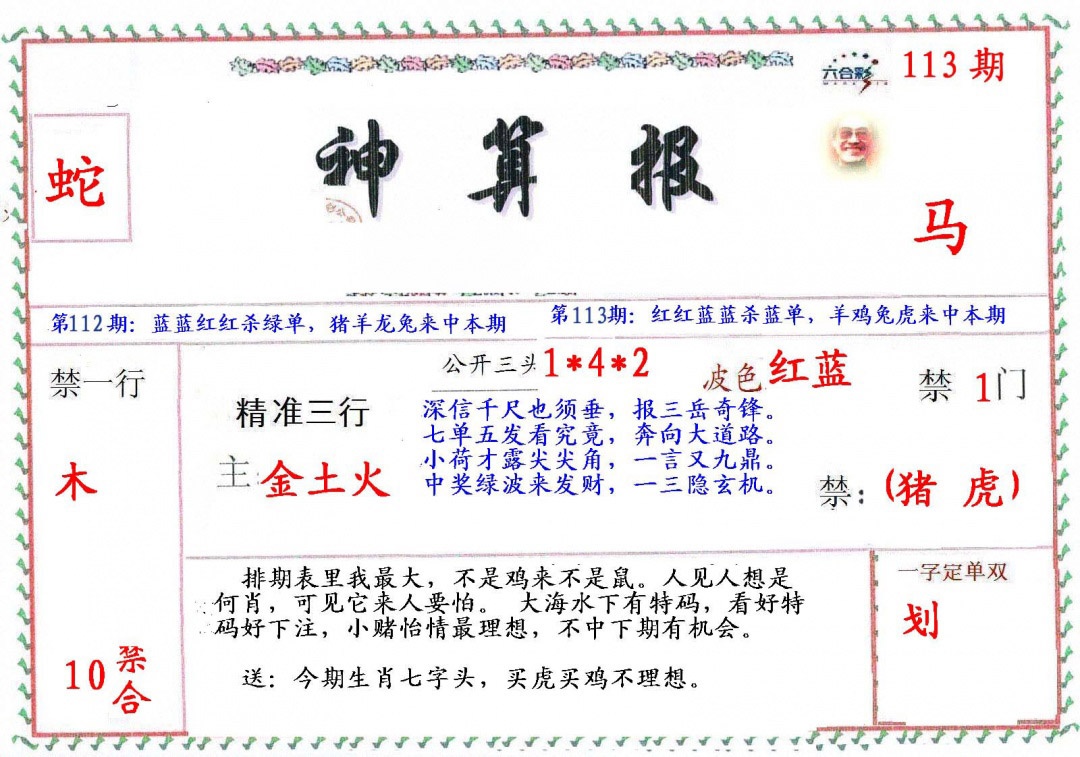 六合彩
113期
蛇
神算报
马
第112期：蓝蓝红红杀绿单，猪羊龙兔来中本期
第113期：红红蓝蓝杀蓝单，羊鸡兔虎来中本期
禁一行
木
10禁合
公开三头1*4*2
波色红蓝
禁1门
精准三行
主:金土火
深信千尺也须垂，报三岳奇锋。
七单五发看究竟，奔向大道路。
小荷才露尖尖角，一言又九鼎。
中奖绿波来发财，一三隐玄机。
禁：(猪 虎)
排期表里我最大，不是鸡来不是鼠。人见人想是
何肖，可见它来人要怕。 大海水下有特码，看好特
码好下注，小赌怡情最理想，不中下期有机会。
送：今期生肖七字头，买虎买鸡不理想。
一字定单双
划